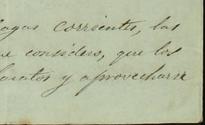 pagas corrientes, las
considero, que los
baratos y aprovecharse